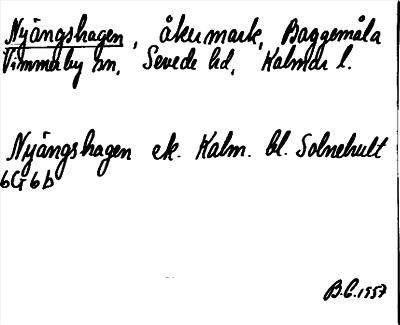 Nyängshagen, åkermark, Baggemåla
Vimmerby sn, Sevede hd, Kalmar l.
Nyängshagen ek. Kalm. bl. Solnehult
6G6b
B.C. 1957